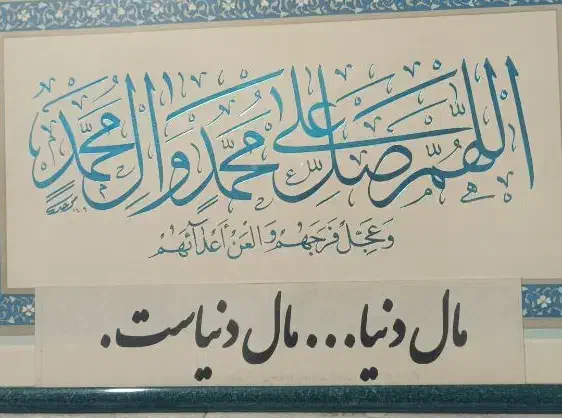 اللّٰهُمَّ صَلِّ عَلٰی مُحَمَّدٍ وَآلِ مُحَمَّدٍ
وَعَجِّلْ فَرَجَهُمْ وَالْعَنْ أَعْدَآئَهُمْ
مال دنیا... مال دنیاست.